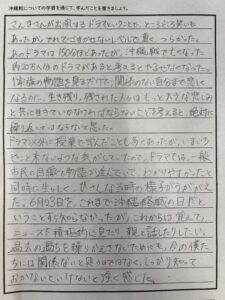 沖縄戦についての学習を通じて、学んだことを書きましょう。
さんまさんが出演するドラマということで、ところどころ笑いも
あったが、それでごまかせないレベルで重く、つらかった。
あのドラマは150分ほどあったが、沖縄戦で亡くなった
約20万人分のドラマがあると考えるとやるせなくなった。
1家族の物語を見るだけで、関係のない自分まで悲しく
なるのに、生き残り、残された人々はもっと大きな悲しみ
と共に生きていかなければならないことを考えると、絶対に
繰り返してはならないと思った。
ドラマ以外に授業で学んだことも多くあったが、いまいち
パッと来ないような気がしていたので、ドラマでは、一般
市民の目線で物語が進んでいて、わかりやすかったと
同時に生々しく、ひさんな当時の様子がうかがえ
た。6月23日を、これまで沖縄慰霊の日だと
いうことすら知らなかったが、これからは覚えて、
ニュースを積極的に見たり、親と話したりしたい。
過去の過ちを繰り返さないためにも、今の僕た
ちには関係ないと思うのではなく、しっかり知って
おかないといけないと強く感じた。